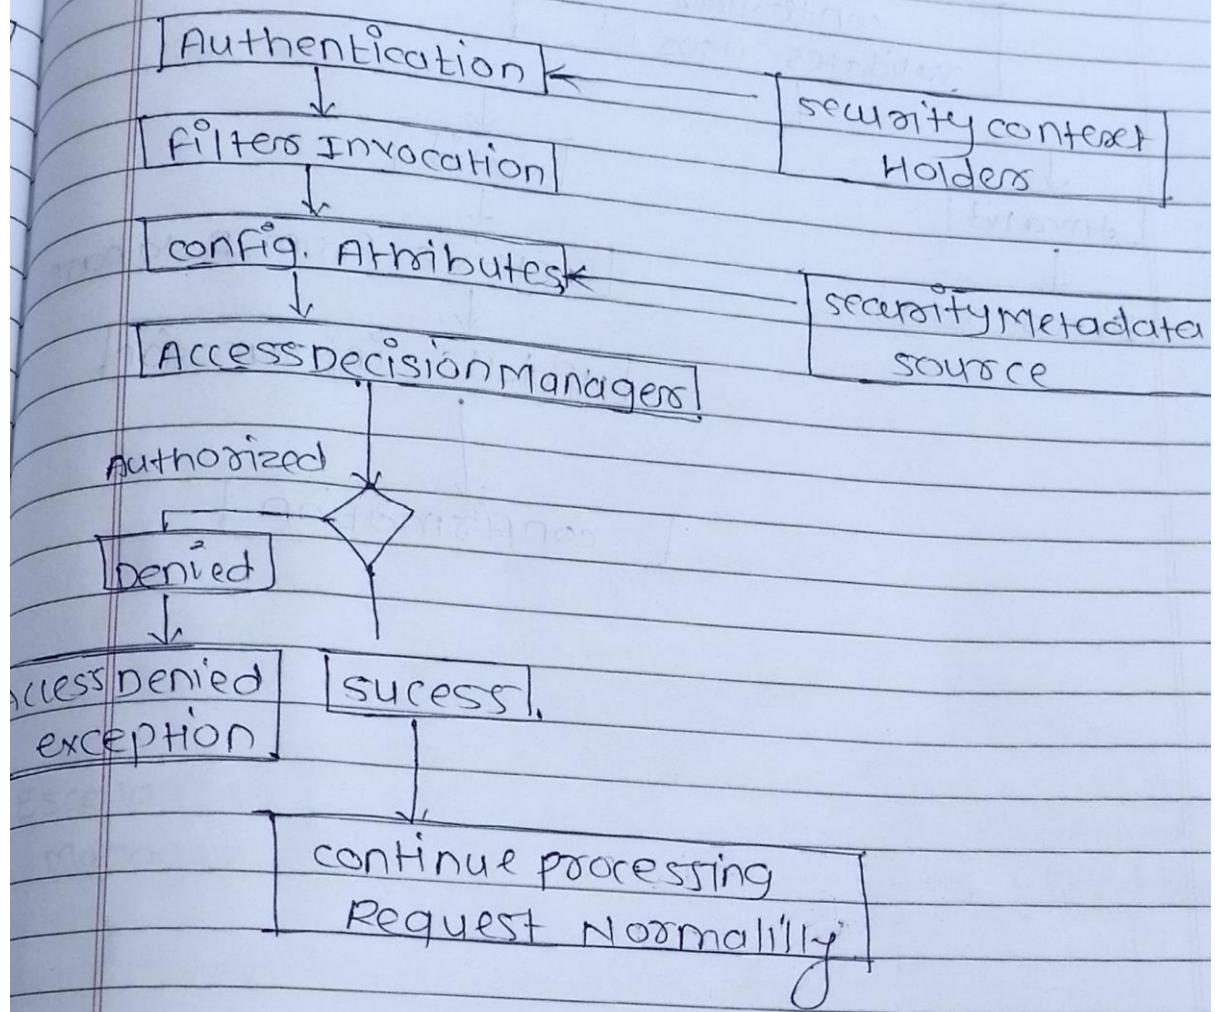 Authentication
security context
Holder
Filter Invocation
config. Attributes
security Metadata
source
AccessDecisionManager
Authorized
Denied
Access Denied
exception
sucess.
continue processing
Request Normalilly